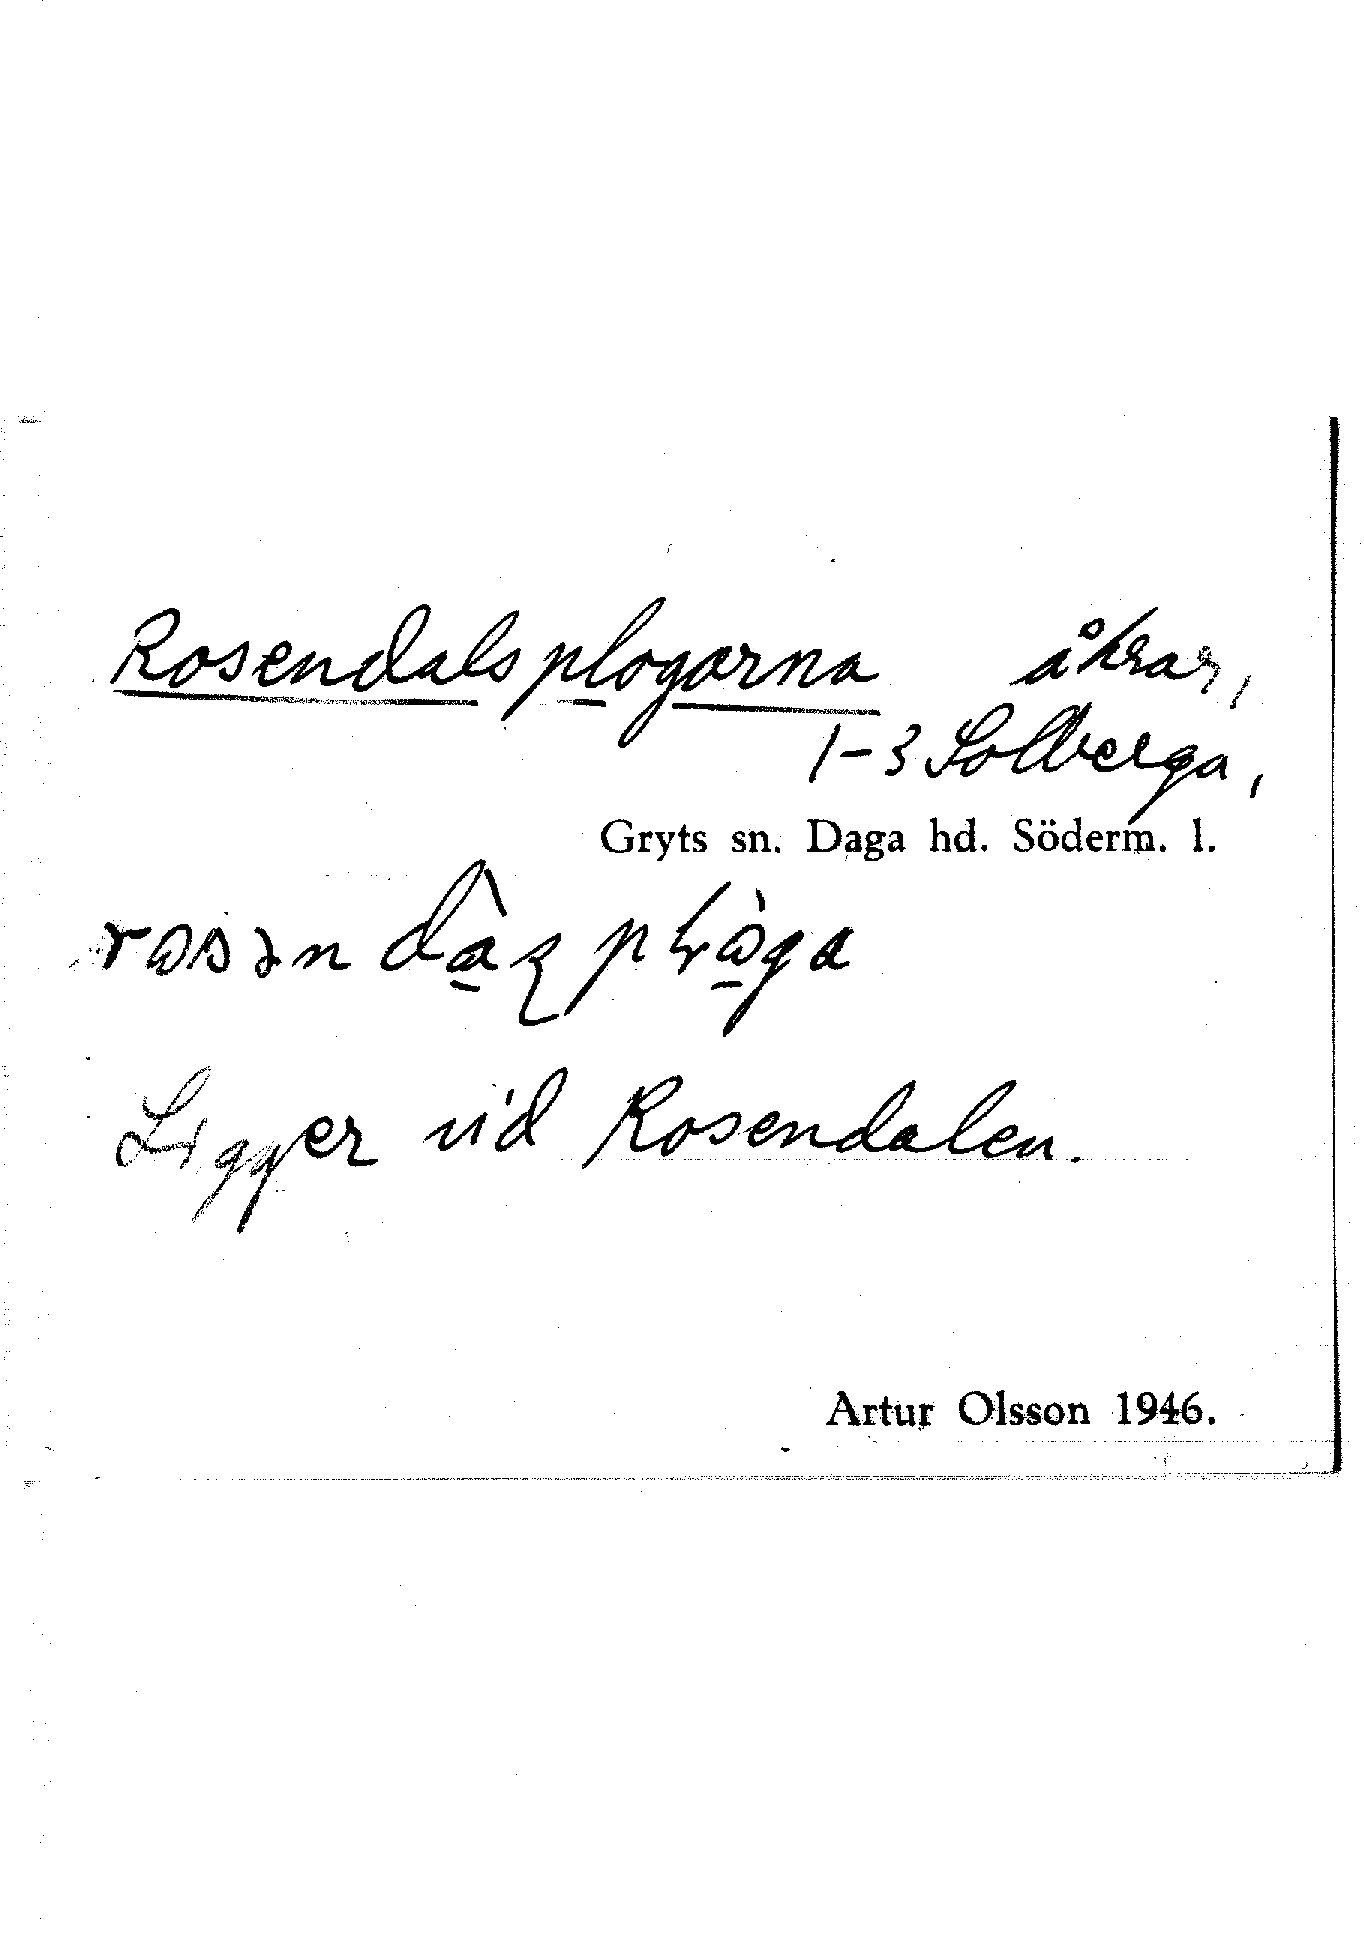 Rosendalsplogarna åkrar,
1-3 Solberga,
Gryts sn. Daga hd. Söderm. l.
Ligger vid Rosendalen.
Artur Olsson 1946.